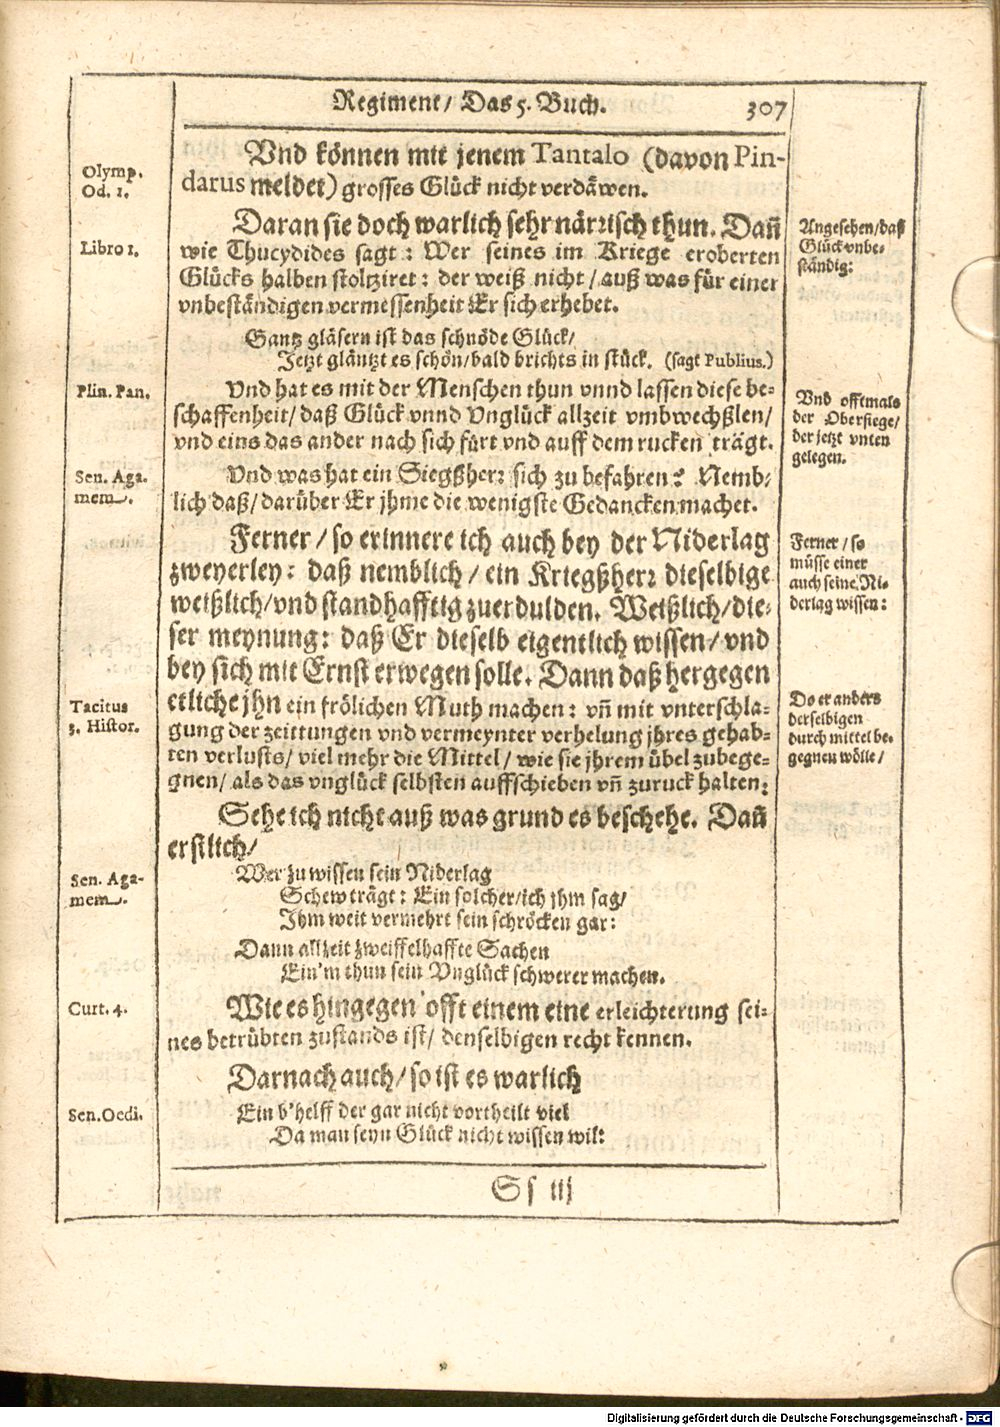 Regiment/ Das 5. Buch. 307
Olymp.
Od. 1.
Vnd können mit jenem Tantalo (davon Pin-
darus meldet) grosses Glück nicht verdäwen.
Daran sie doch warlich sehr närrisch thun. Dañ
Libro 1.
wie Thucydides sagt: Wer seines im Kriege eroberten
Glücks halben stoltziret: der weiß nicht/ auß was für einer
vnbeständigen vermessenheit Er sich erhebet.
Angesehen/daß
Glück vnbe-
ständig:
Gantz gläsern ist das schnöde Glück/
Jetzt gläntzt es schön/bald brichts in stück. (sagt Publius.)
Plin. Pan.
Vnd hat es mit der Menschen thun vnnd lassen diese be-
schaffenheit/ daß Glück vnnd Vnglück allzeit vmbwechßlen/
vnd eins das ander nach sich fürt vnd auff dem rucken trägt.
Vnd offtmals
der Obersiege/
der jetzt vnten
gelegen.
Sen. Aga-
mem.
Vnd was hat ein Siegßherr sich zu befahren? Nemb-
lich daß/ darüber Er jhme die wenigste Gedancken machet.
Ferner/ so erinnere ich auch bey der Niderlag
zweyerley: daß nemblich/ ein Kriegßherr dieselbige
weißlich/vnd standhafftig zuerdulden. Weißlich/die-
ser meynung: daß Er dieselb eigentlich wissen/ vnd
bey sich mit Ernst erwegen solle. Dann daß hergegen
Ferner/ so
müsse einer
auch seine Ni-
derlag wissen:
Tacitus
3. Histor.
etliche jhn ein frölichen Muth machen: vñ mit vnterschla-
gung der zeittungen vnd vermeynter verhelung jhres gehab-
ten verlusts/ viel mehr die Mittel/ wie sie jhrem übel zubege-
gnen/ als das vnglück selbsten auffschieben vñ zuruck halten:
Do er anders
derselbigen
durch mittel be-
gegnen wölle/
Sehe ich nicht auß was grund es beschehe. Dañ
erstlich/
Sen. Aga-
mem.
Wer zu wissen sein Niderlag
Schew trägt: Ein solcher/ich jhm sag/
Ihm weit vermehrt sein schröcken gar:
Dann allzeit zweiffelhaffte Sachen
Ein'm thun sein Vnglück schwerer machen.
Curt. 4.
Wie es hingegen offt einem eine erleichterung sei-
nes betrübten zustands ist/ denselbigen recht kennen.
Darnach auch/ so ist es warlich
Sen. Oedi.
Ein b'helff der gar nicht vortheilt viel
Da man seyn Glück nicht wissen wil:
Ss iij
Digitalisierung gefördert durch die Deutsche Forschungsgemeinschaft - DFG